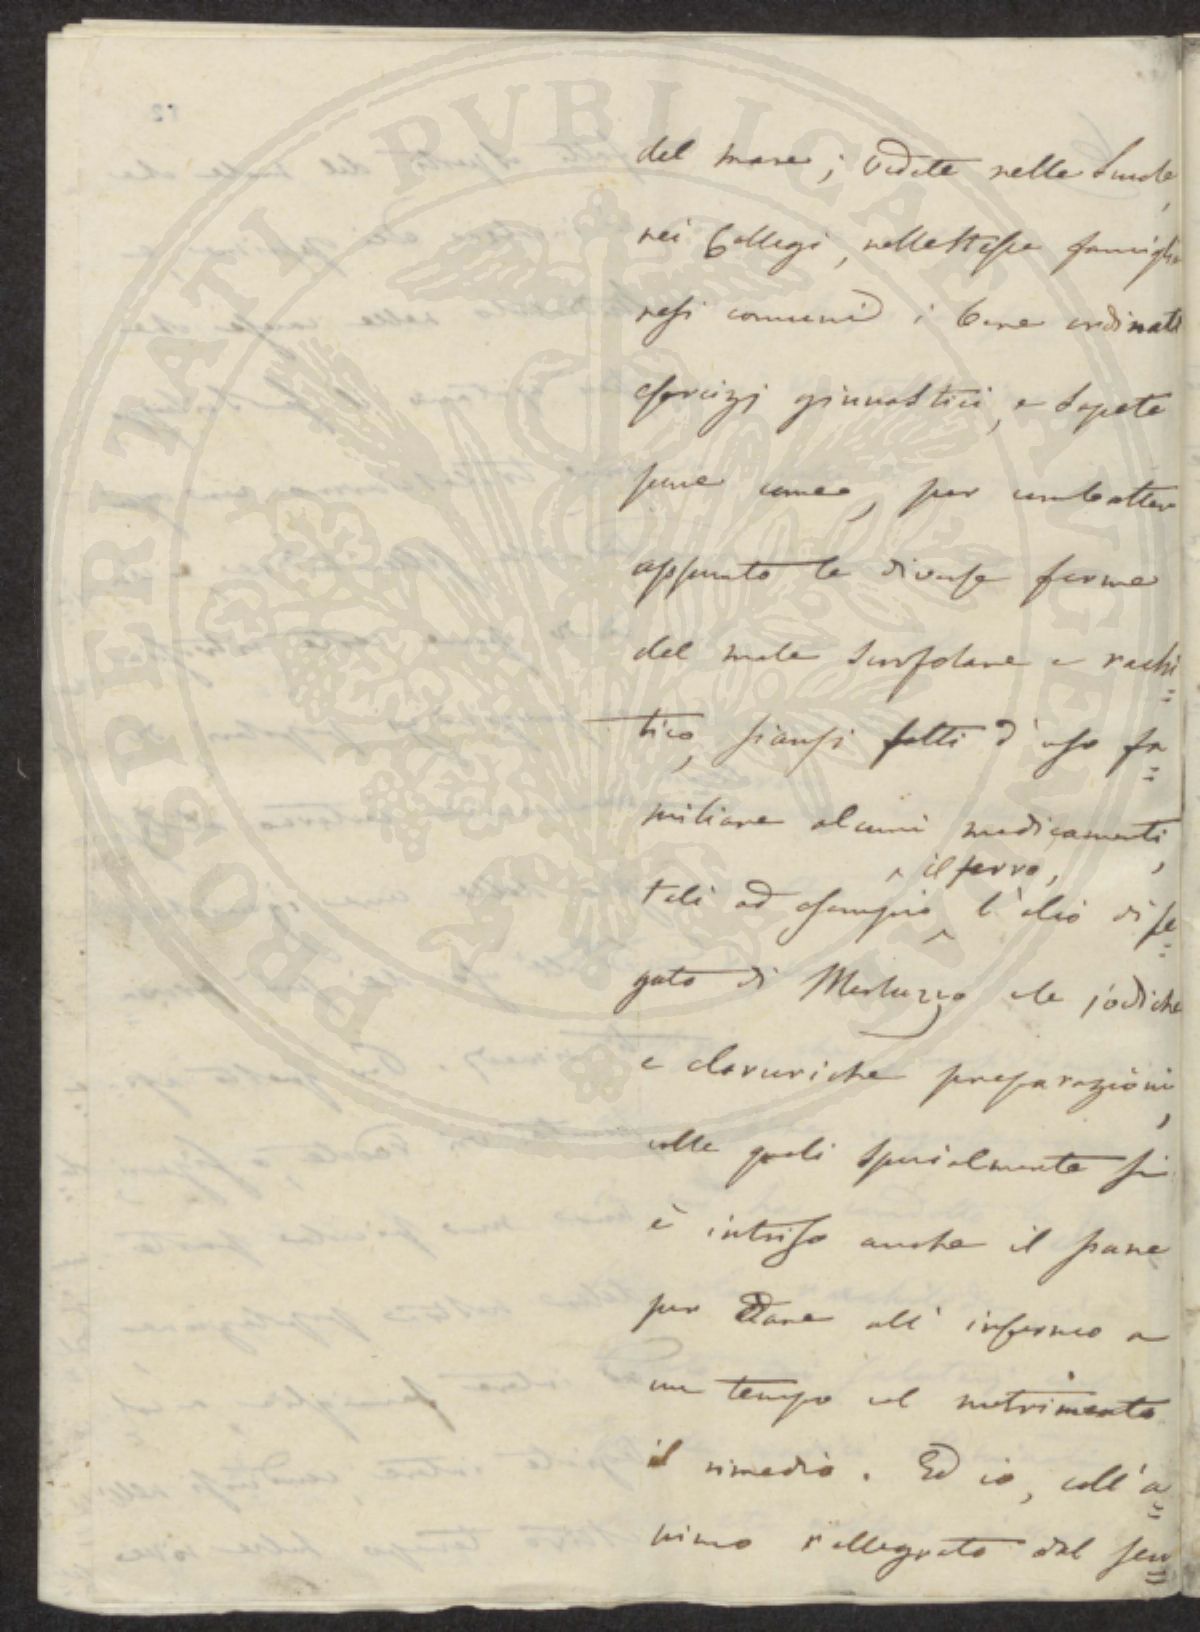 del mare; vedete nelle Scuole,
nei Collegi, nelle stesse famiglie
resi comuni i bene ordinati
esercizj ginnastici, e sapete
pure come, per combatter
appunto le diverse forme
del male scrofolare e rachi=
tico, siansi fatti d'uso fa=
miliare alcuni medicamenti,
^ il ferro,
tali ad esempio ^ l'olio di fe=
gato di Merluzzo e le jodiche
e cloruriche preparazioni,
colle quali specialmente si
è intriso anche il pane
per dare all'infermo a
un tempo col nutrimento
il rimedio. Ed io, coll'a=
nimo rallegrato dal sen=
PROSPERITATI PVBLICAE AVGENDAE